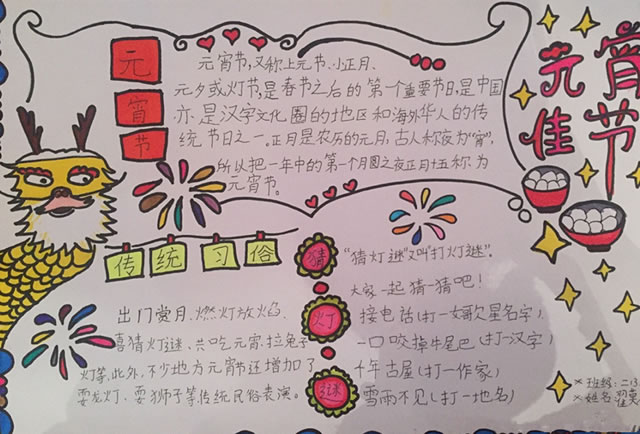 元宵节
元宵佳节
元宵节,又称上元节、小正月、
元夕或灯节,是春节之后的第一个重要节日,是中国
亦是汉字文化圈的地区和海外华人的传
统节日之一。正月是农历的元月,古人称夜为“宵”,
所以把一年中的第一个月圆之夜正月十五称为
元宵节。
传统习俗
出门赏月、燃灯放焰、
喜猜灯谜、共吃元宵、拉兔子
灯等,此外,不少地方元宵节还增加了
耍龙灯、耍狮子等传统民俗表演。
猜灯谜
“猜灯谜”又叫“打灯谜”。
大家一起猜一猜吧!
接电话(打一女歌星名字),
一口咬掉牛尾巴(打一汉字)
千年古屋(打一作家)
雪雨不见(打一地名)
班级:二13
姓名:翟